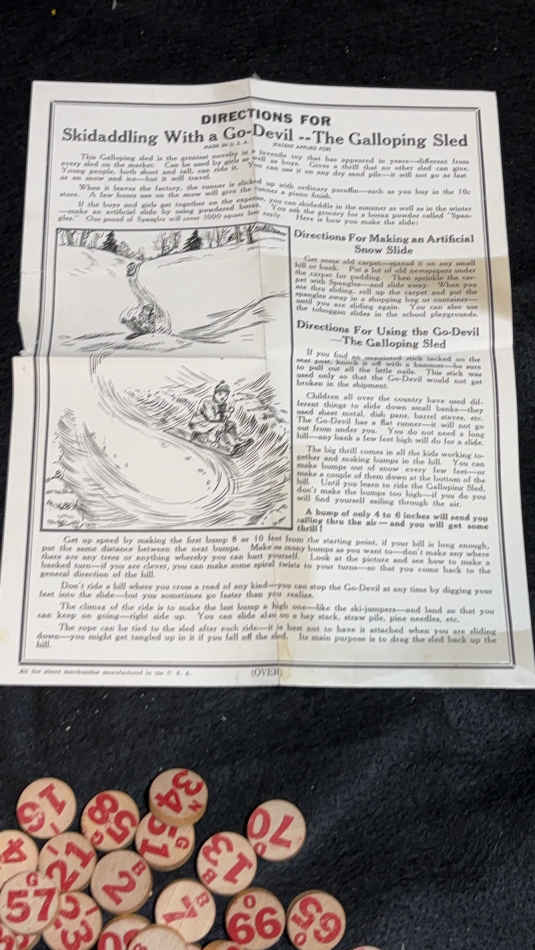 DIRECTIONS FOR
Skidaddling With a Go-Devil --The Galloping Sled
MADE IN U. S. A. PATENT APPLIED FOR
This Galloping sled is the greatest novelty in a juvenile toy that has appeared in years—different from
every sled on the market. Can be used by girls as well as boys. Gives a thrill that no other sled can give.
Young people, both short and tall, can ride it. You can use it on any dry sand pile—it will not go as fast
as on snow and ice—but it will travel.
When it leaves the factory, the runner is slicked up with ordinary paraffin—such as you buy in the 10c
store. A few hours use on the snow will give the runner a piano finish.
If the boys and girls get together on the expense, you can skidaddle in the summer as well as in the winter
—make an artificial slide by using powdered borax. You ask the grocery for a borax powder called "Span-
gles." One pound of Spangles will cover 5000 square feet easily. Here is how you make the slide:
Directions For Making an Artificial
Snow Slide
Get some old carpet—spread it on any small
hill or bank. Put a lot of old newspapers under
the carpet for padding. Then sprinkle the car-
pet with Spangles—and slide away. When you
are thru sliding, roll up the carpet and put the
spangles away in a shopping bag or container—
until you are sliding again. You can also use
the toboggan slides in the school playgrounds.
Directions For Using the Go-Devil
—The Galloping Sled
If you find an unpainted stick tacked on the
seat post, knock it off with a hammer—be sure
to pull out all the little nails. This stick was
used only so that the Go-Devil would not get
broken in the shipment.
Children all over the country have used dif-
ferent things to slide down small banks—they
used sheet metal, dish pans, barrel staves, etc.
The Go-Devil has a flat runner—it will not go
out from under you. You do not need a long
hill—any bank a few feet high will do for a slide.
The big thrill comes in all the kids working to-
gether and making bumps in the hill. You can
make bumps out of snow every few feet—or
make a couple of them down at the bottom of the
hill. Until you learn to ride the Galloping Sled,
don't make the bumps too high—if you do you
will find yourself sailing through the air.
A bump of only 4 to 6 inches will send you
sailing thru the air — and you will get some
thrill!
Get up speed by making the first bump 8 or 10 feet from the starting point, if your hill is long enough,
put the same distance between the next bumps. Make as many bumps as you want to—don't make any where
there are any trees or anything whereby you can hurt yourself. Look at the picture and see how to make a
banked turn—if you are clever, you can make some spiral twists to your turns—so that you come back to the
general direction of the hill.
Don't ride a hill where you cross a road of any kind—you can stop the Go-Devil at any time by digging your
feet into the slide—but you sometimes go faster than you realize.
The climax of the ride is to make the last bump a high one—like the ski-jumpers—and land so that you
can keep on going—right side up. You can slide also on a hay stack, straw pile, pine needles, etc.
The rope can be tied to the sled after each ride—it is best not to have it attached when you are sliding
down—you might get tangled up in it if you fall off the sled. Its main purpose is to drag the sled back up the
hill.
All the above merchandise manufactured in the U. S. A.
(OVER)
34
N
16
I
58
G
51
G
70
O
4
21
I
13
B
2
B
57
G
7
B
66
O
65
O